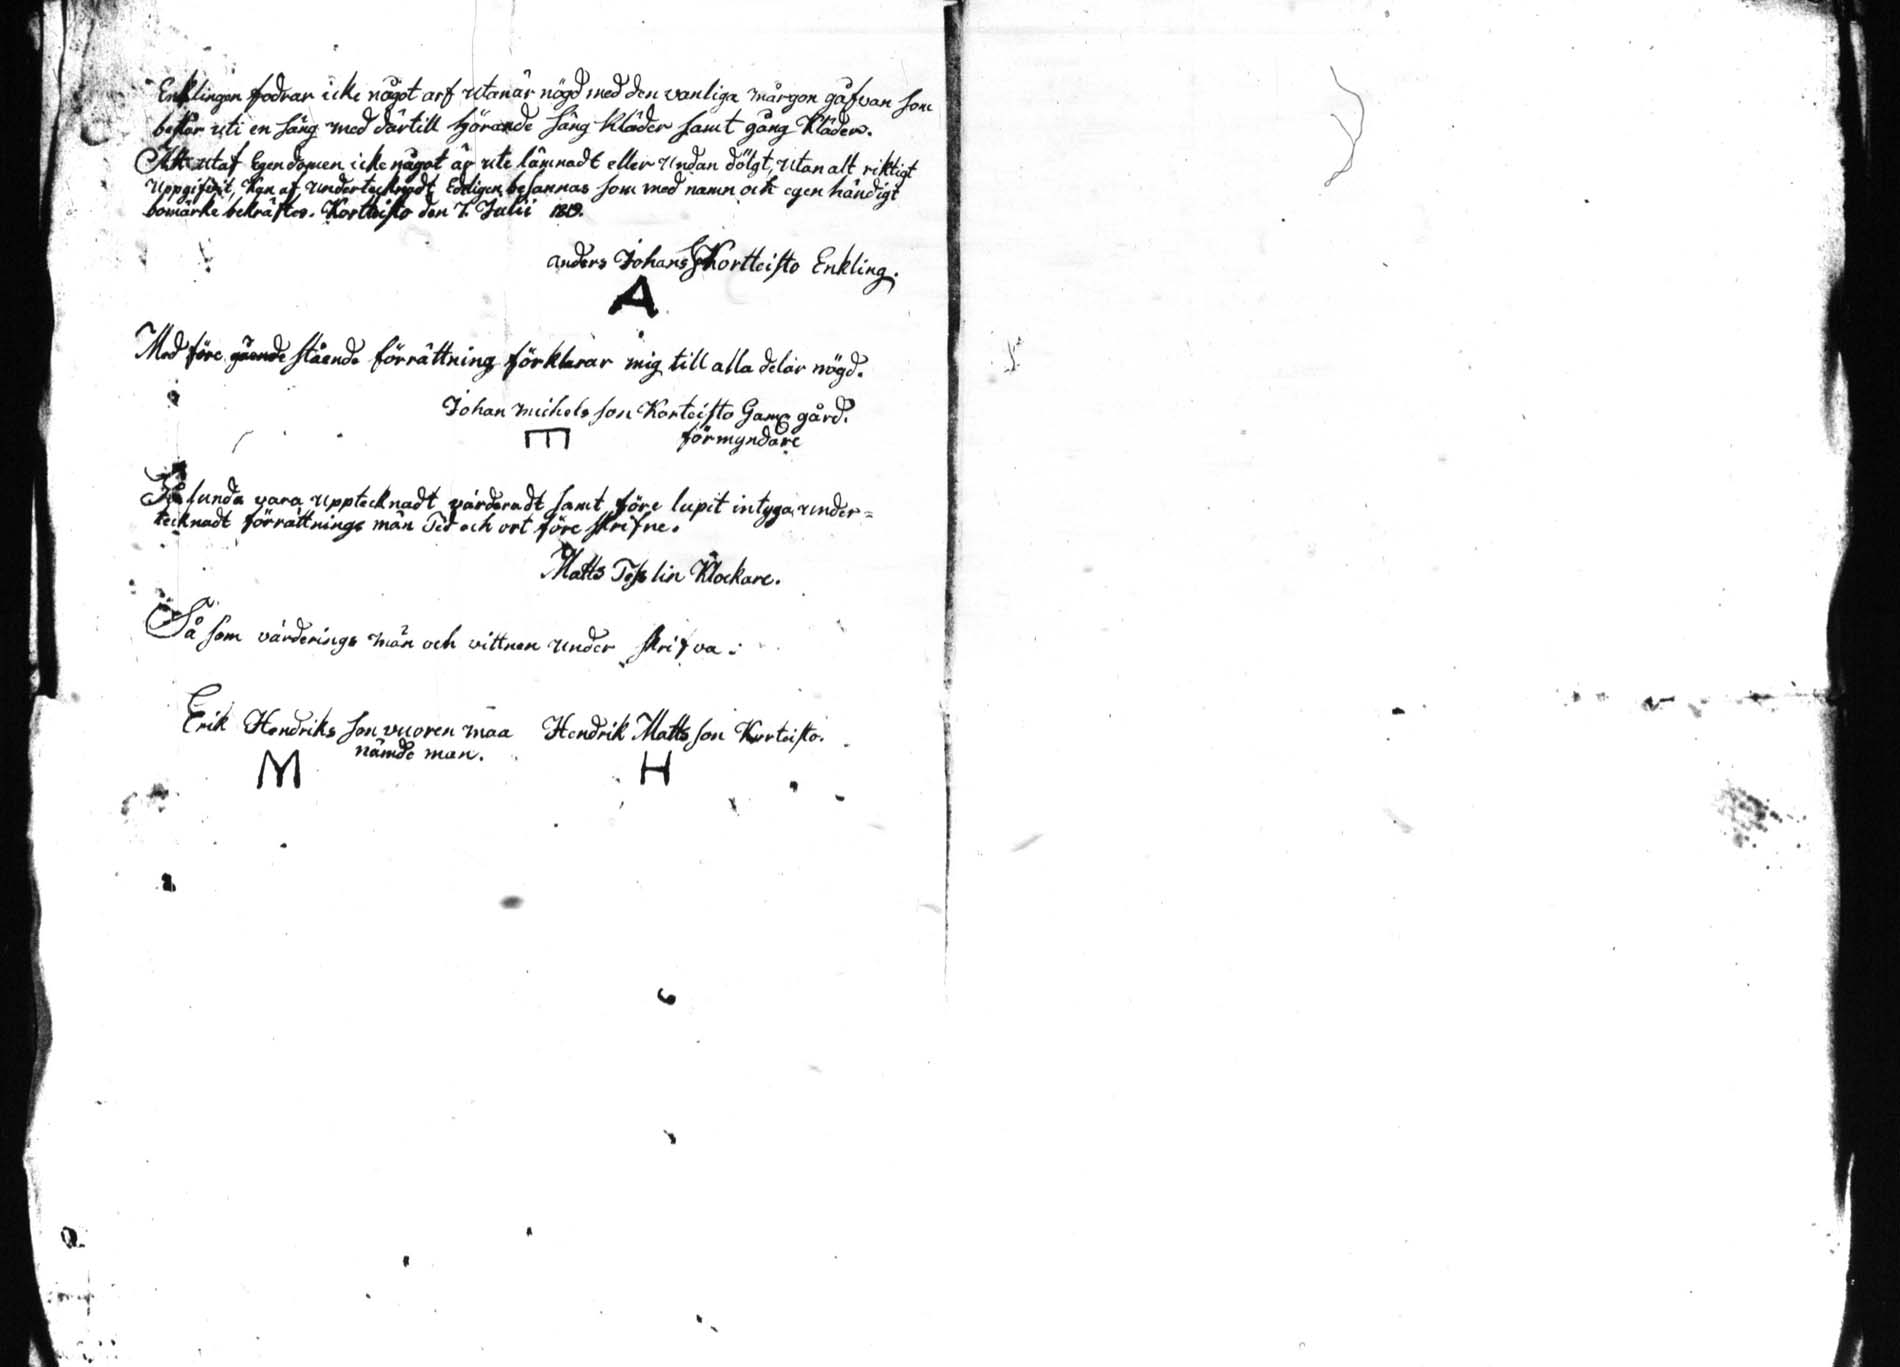 Enklingen fodrar icke något arf utan är nögd med den vanliga mårgon gåfvan som
består uti en säng med därtill hjörande säng kläder samt gång kläder.
Att utaf Egendomen icke något är ute lämnadt eller undan dölgt, utan alt riktigt
uppgifvit, kan af undertecknadt Edeligen besannas som med namn och egen händigt
bomärke bekräftes. Kortteisto den 7. Julii 1819.
anders Johans Son Kortteisto Enkling.
A
Med före gående stående förrättning förklarar mig till alla delar nögd.
Johan michels son Korteisto Gam gård.
E förmyndare
På sunda vara upptecknadt värderadt samt före lupit intyga under=
tecknadt förrättnings män Tid och ort före skrifne.
Matts Klockare.
Så som värderings män och vittnen under skrifva:
Erik Hendriks son vuoren maa Hendrik Matts son Korteisto.
nämde man.
M H